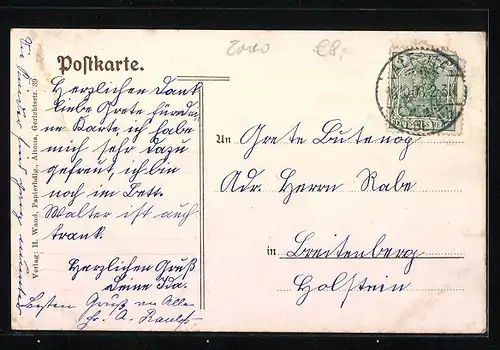 Zoreo €8,-
Postkarte.
Herzlichen Dank
liebe Grete für dei-
ne Karte, ich habe
mich sehr dazu
gefreut, ich bin
noch im Bett.
Walter ist auch
krank.
Herzlichen Gruß
Deine Ida.
Besten Gruß von Allen
Verlag: H. Wand, Papierhdlg., Altona, Gerichtsstr. 39
An Grete Butenog
Adr. Herrn Rabe
in Breitenberg
Holstein